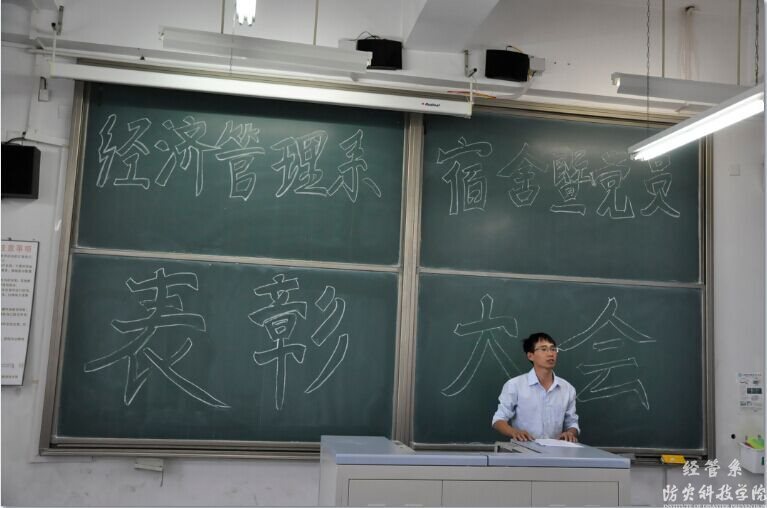 经济管理系
宿舍暨党员
表彰
大会
注意事项
经管系
防灾科技学院
INSTITUTE OF DISASTER PREVENTION